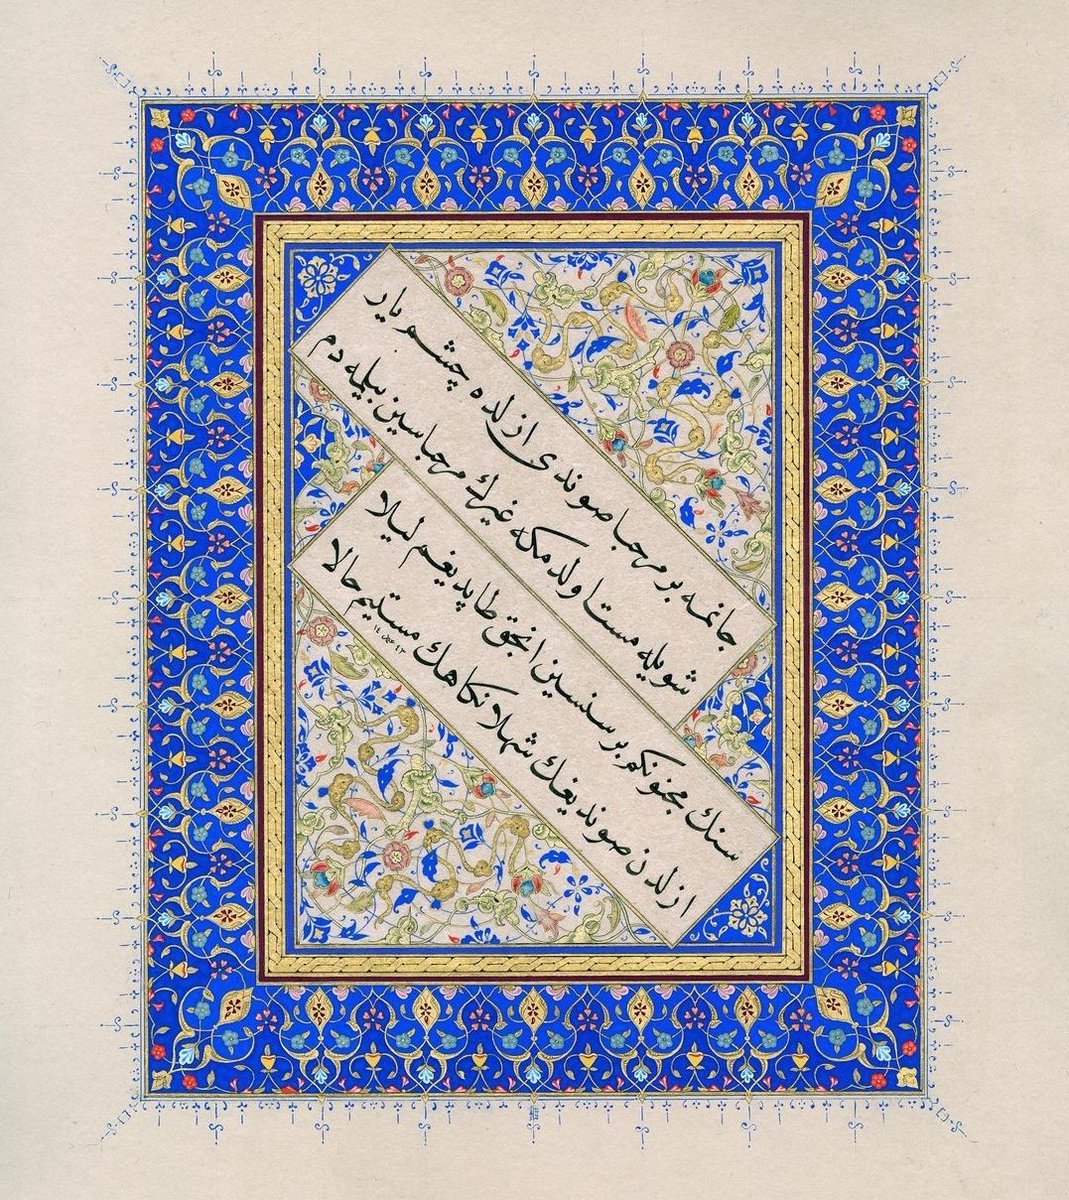 جانمه بر مرحبا صوندی ازلده چشم یار
شویله مست اولدمكه غیرك مرحباسین بیلمه دم
سنك مجنونكم بر سنسین انجق طاپدیغم لیلا
ازلدن صوندیغك شهلا نكاهك مستیم حالا